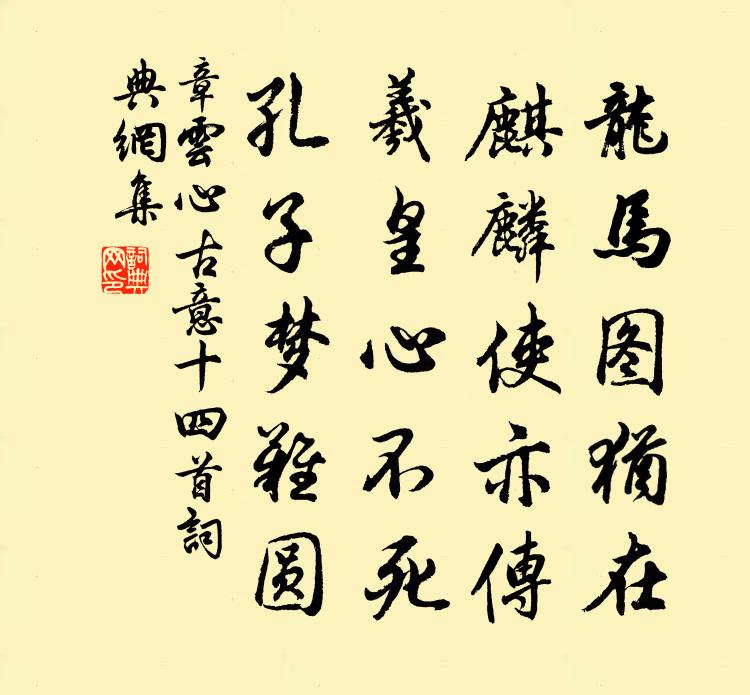 龍馬图猶在
麒麟使亦傳
羲皇心不死
孔子梦難圆
章雲心古意十四首詞
典網集
詞典
网印